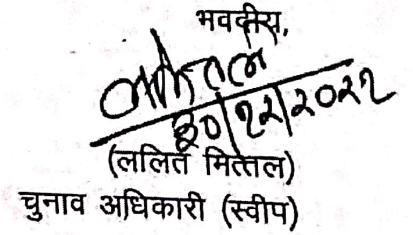 भवदीय,
३०|१२|२०२२
(ललित मित्तल)
चुनाव अधिकारी (स्वीप)